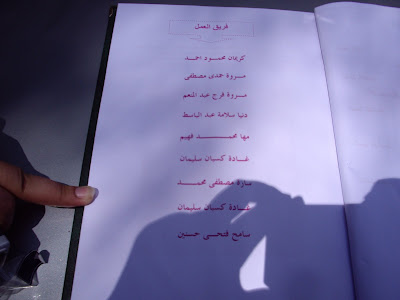 فريق العمل
كريمان محمود احمد
مروة حمدى مصطفى
مروة فرج عبد المنعم
دنيا سلامة عبد الباسط
مها محمد فهيم
غادة كسبان سليمان
سارة مصطفى محمد
غادة كسبان سليمان
سامح فتحى حسنين